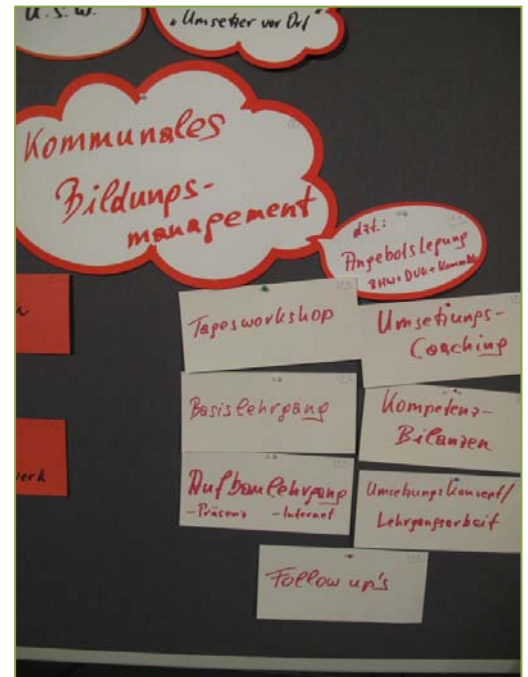 u.s.w.
"Umsetzer vor Ort"
Kommunales
Bildungs-
management
dzt.:
Angebotslegung
BHW + DUK +
Tagesworkshop
Umsetzungs-
Coaching
Basislehrgang
Kompetenz-
Bilanzen
Aufbaulehrgang
- Präsenz - Internet
Umsetzungskonzept/
Lehrgangsarbeit
werk
Follow up's